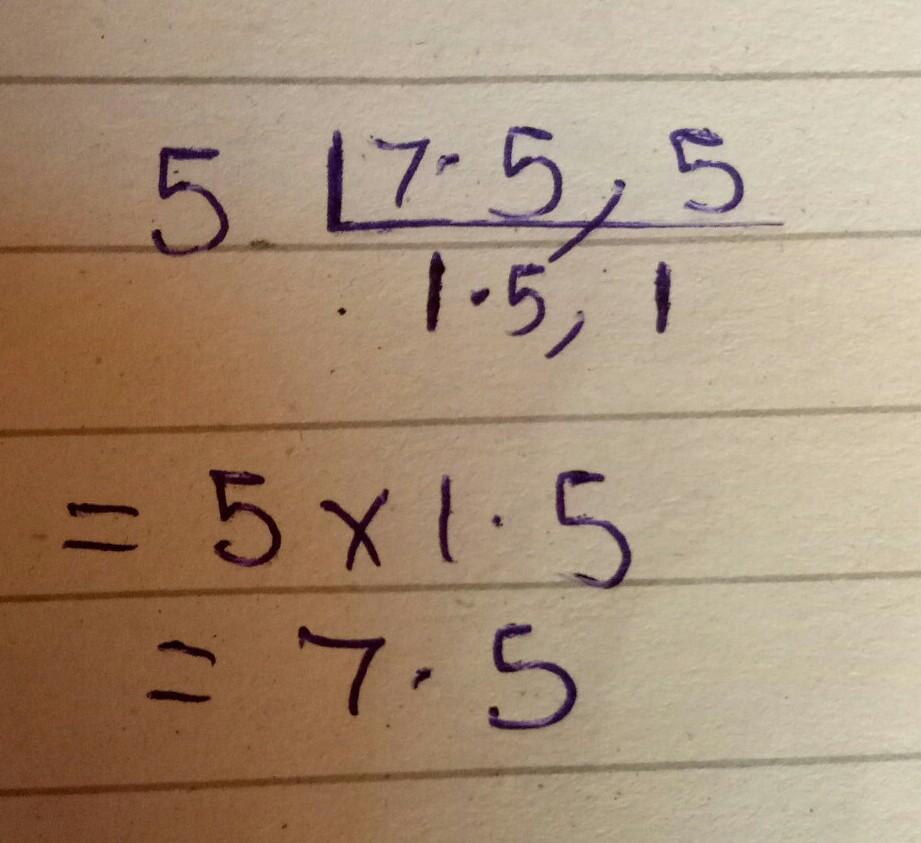 5 7.5, 5
1.5, 1
= 5 x 1.5
= 7.5